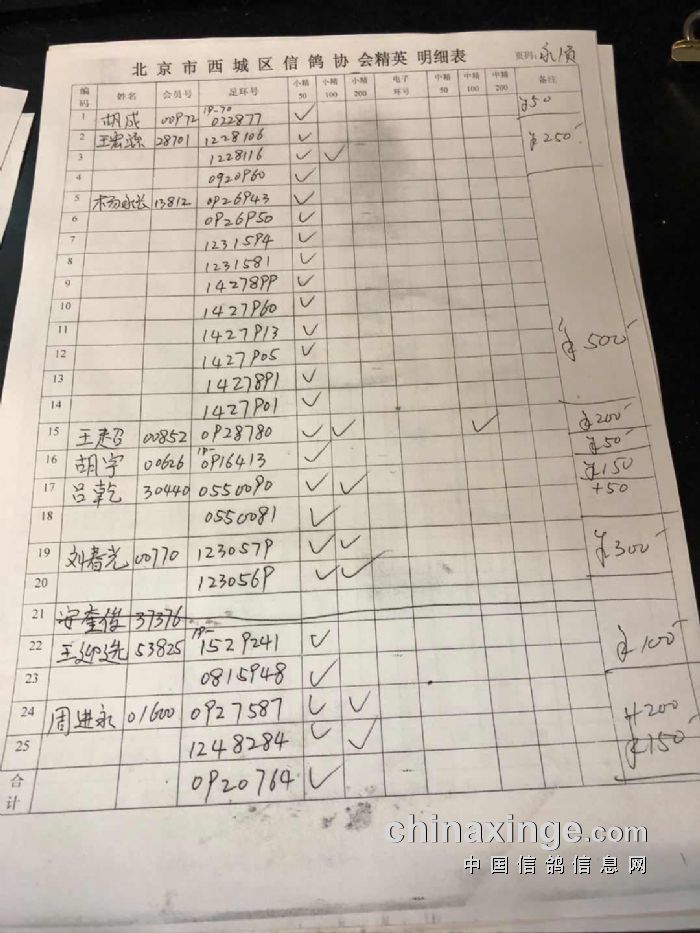 北京市西城区信鸽协会精英 明细表
编码 姓名 会员号 足环号 小精50 小精100 小精200 电子环号 中精50 中精100 中精200 备注
1 胡成 00972 19-70 022877 ✓ ¥50
2 28701 1228106 ✓ ¥250
3 1228116 ✓ ✓
4 0920960 ✓
5 杨永长 13812 0926943 ✓
6 0926950 ✓
7 1231594 ✓
8 1231581 ✓
9 1427899 ✓
10 1427960 ✓
11 1427913 ✓
12 1427905 ✓
13 1427891 ✓
14 1427901 ✓ ¥500
15 王超 00852 0928780 ✓ ✓ ✓ ¥200
16 胡宇 00626 19- 0916413 ✓ ¥50
17 吕乾 30440 0550090 ✓ ✓ ¥150
18 0550081 ✓ +50
19 刘春光 00770 1230579 ✓ ✓ ¥300
20 1230569 ✓ ✓
21 安奎俊 37376
22 王迎选 53825 19- 1529241 ✓ ¥100
23 0815948 ✓
24 周进永 01600 0927587 ✓ ✓ +200
25 1248284 ✓ ✓ ¥150
合计 0920764 ✓
chinaxinge.com
中国信鸽信息网